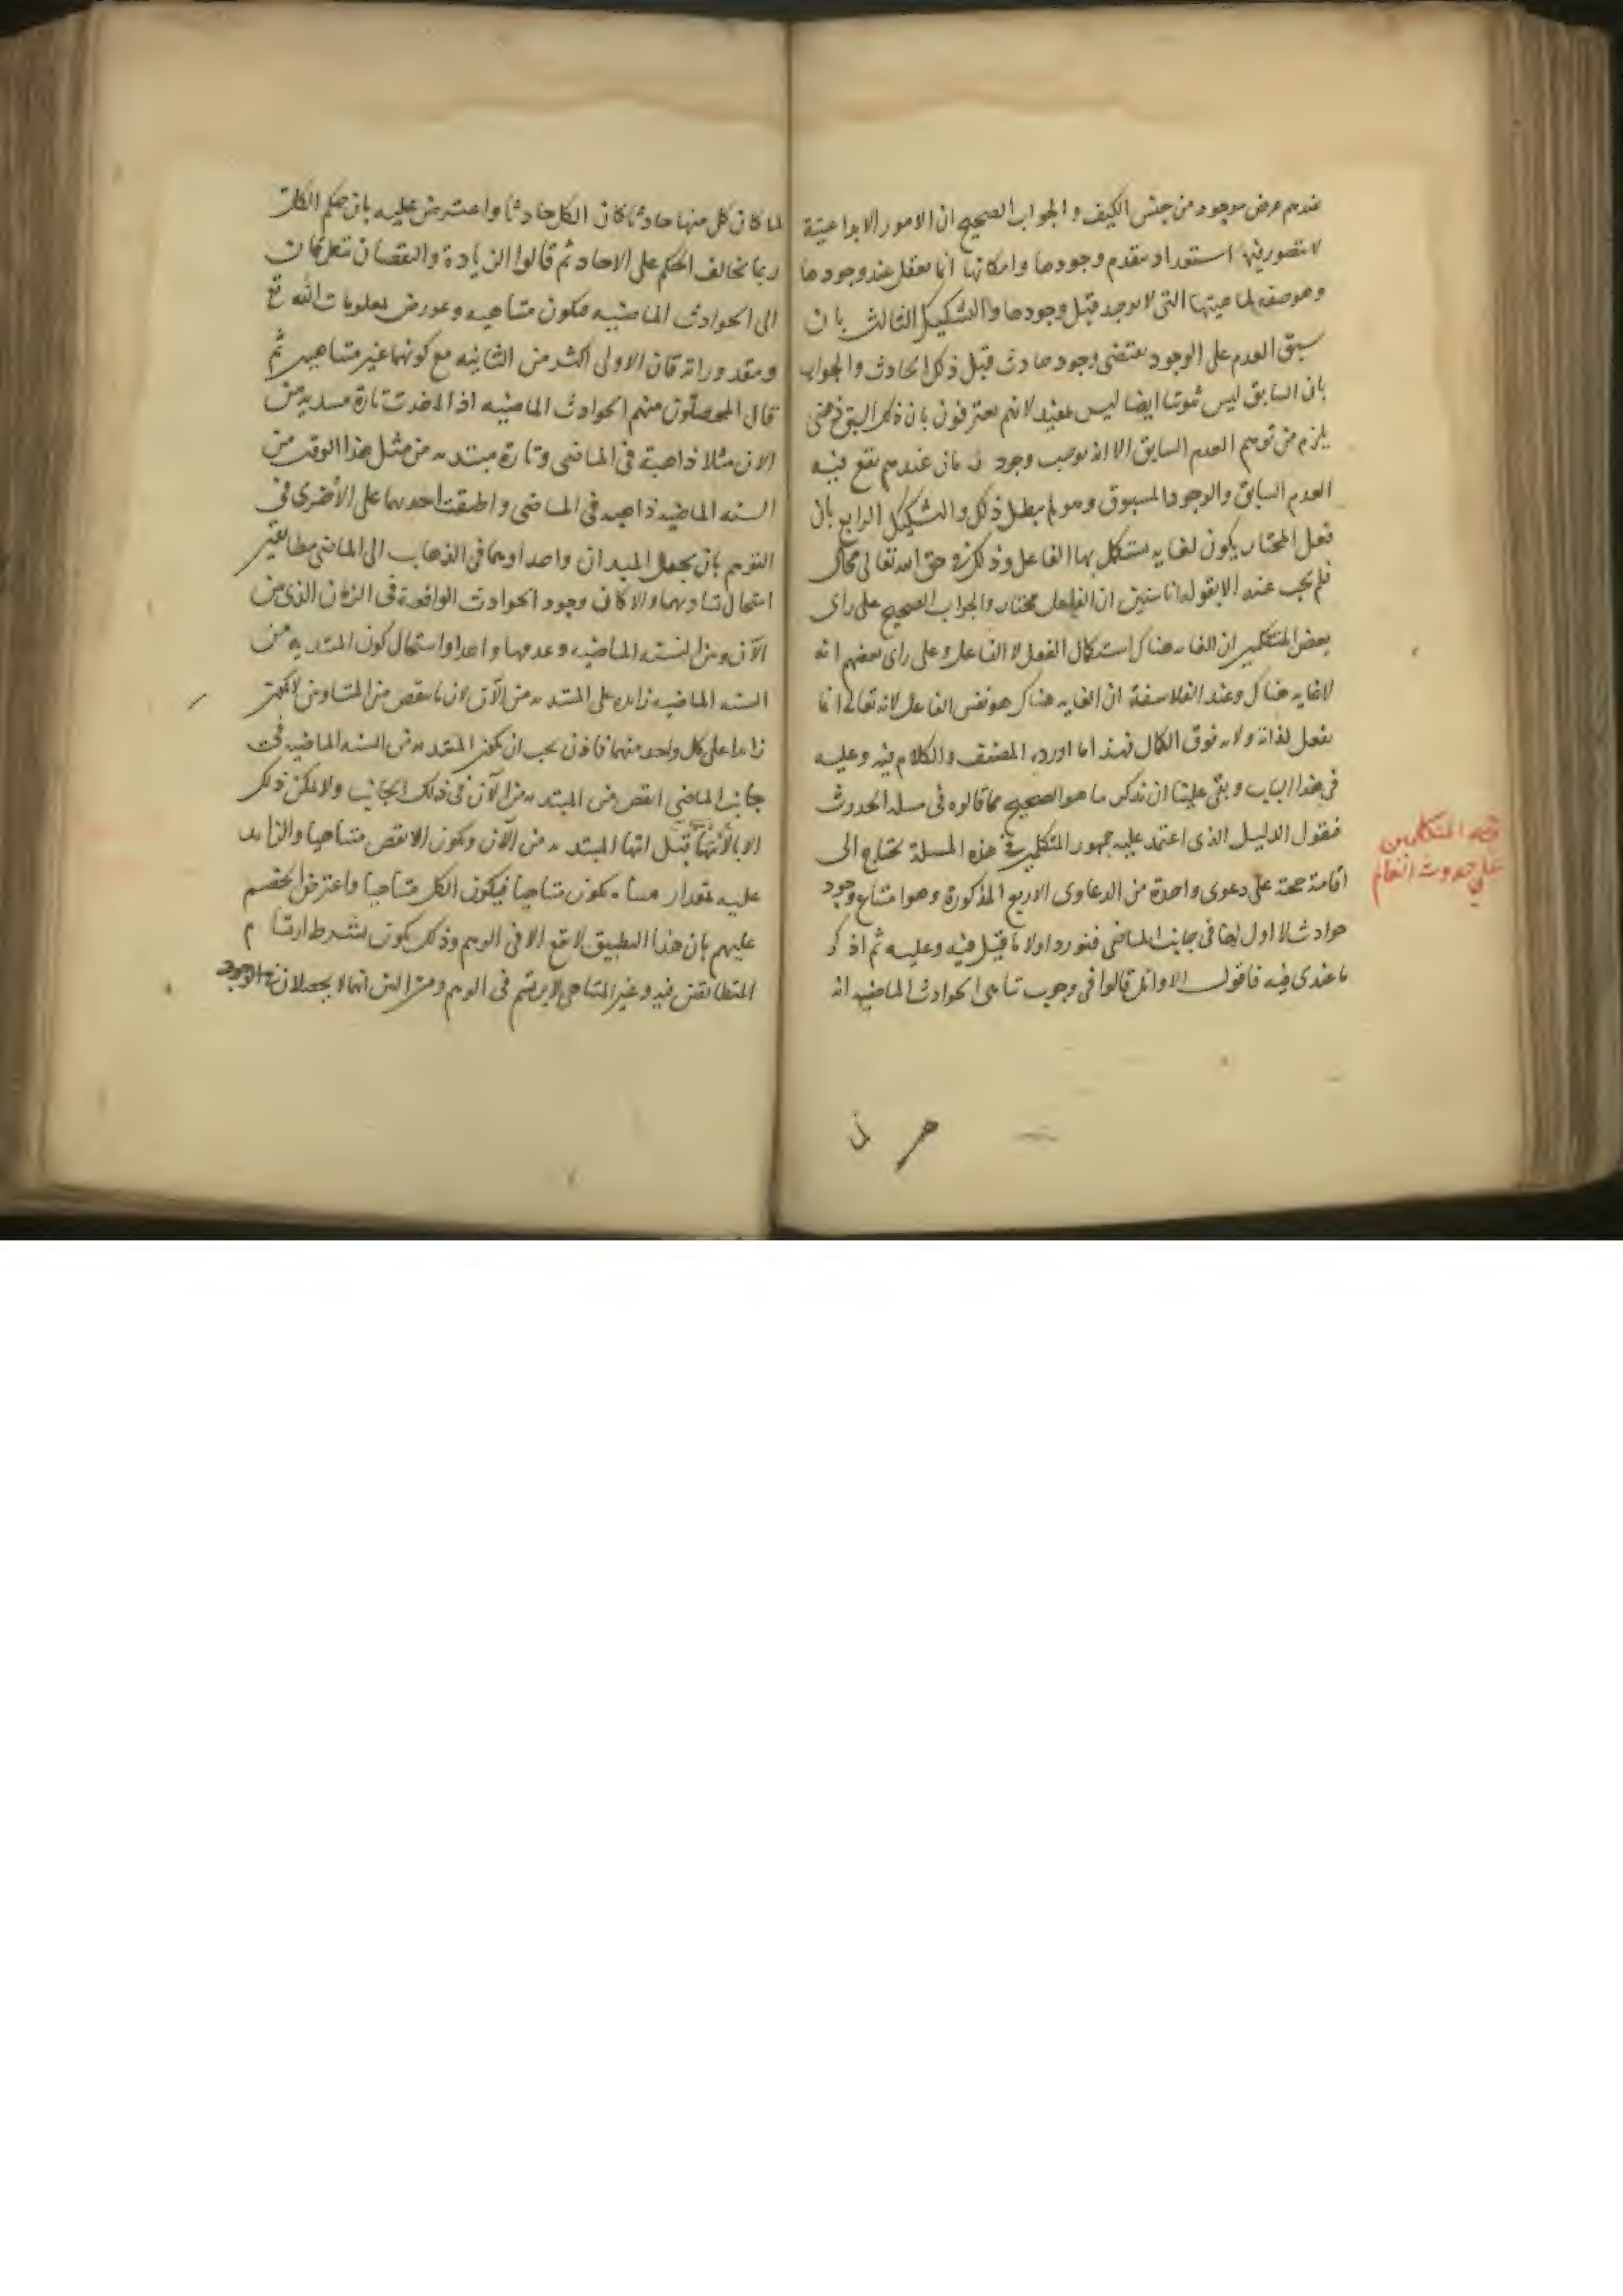 عندهم عرض موجود من جنس الكيف والجواب الصحيح ان الامور الابداعية
لا يتصور فيها استعداد يتقدم وجودها وامكانها انما يعقل عند وجودها
وهو صفة لماهيتها التى لا توجد قبل وجودها والتشكيك الثالث بان
سبق العدم على الوجود يقتضى وجود حادث قبل ذلك الحادث والجواب
بان السابق ليس ثبوتيا ايضا ليس بمفيد لانهم يعترفون بان ذلك السبق فرضى
يلزم من توهم العدم السابق الا انه يوجب وجود زمان عندهم يقع فيه
العدم السابق والوجود المسبوق وهو لم يبطل ذلك والتشكيك الرابع بان
فعل المختار يكون لغاية يستكمل بها الفاعل وذلك فى حق الله تعالى محال
فلم يجب عنه الا بقوله انا سنبين ان الفاعل مختار والجواب الصحيح على راى
بعض المتكلمين ان الغاية هناك استكمال الفعل لا الفاعل وعلى راى بعضهم انه
لا غاية هناك وعند الفلاسفة ان الغاية هناك هو نفس الفاعل لانه تعالى انما
يفعل لذاته ولانه فوق الكمال فهذا ما اورده المصنف والكلام فيه وعليه
فى هذا الباب وبقى علينا ان نذكر ما هو الصحيح مما قالوه فى مسلة الحدوث
فنقول الدليل الذى اعتمد عليه جمهور المتكلمين فى هذه المسلة يحتاج الى
اقامة حجة على دعوى واحدة من الدعاوى الاربع المذكورة وهو امتناع وجود
حوادث لا اول لها فى جانب الماضى فنورد اولا ما قيل فيه وعليه ثم اذكر
ما عندى فيه فاقول الاوائل قالوا فى وجوب تناهى الحوادث الماضية انه
المتكلمين
على حدوث العالم
لما كان كل منها حادثا كان الكل حادثا واعترض عليه بان حكم الكل
ربما يخالف الحكم على الاحاد ثم قالوا الزيادة والنقصان يتعلقان
الى الحوادث الماضية فيكون متناهية وعورض بمعلومات الله تع
ومقدوراته فان الاولى اكثر من الثانية مع كونهما غير متناهيين ثم
قال المحصلون منهم الحوادث الماضية اذا اخذت تارة مبتدية من
الان مثلا ذاهبة فى الماضى وتارة مبتدية من مثل هذا الوقت من
السنة الماضية ذاهبة فى الماضى واطبقت احديهما على الأخرى فى
التوهم بان يجعل المبدان واحدا وهما فى الذهاب الى الماضى متطابقين
استحال تساويهما والا كان وجود الحوادث الواقعة فى الزمان الذى بين
الآن وبين السنة الماضية وعدمها واحدا واستحال كون المبتدية من
السنة الماضية زايدة على المبتدية من الآن لان ما ينقص من المتساويين لا يكون
زايدا على كل واحد منهما فاذن يجب ان يكون المبتدية من السنة الماضية فى
جانب الماضى انقص من المبتدية من الآن فى ذلك الجانب ولا يمكن ذلك
الا بانتهائها قبل انتهاء المبتدية من الآن ويكون الانقص متناهيا والزايد
عليه بمقدار متناه يكون متناهيا فيكون الكل متناهيا واعترض الخصم
عليهم بان هذا التطبيق لا يقع الا فى الوهم وذلك يكون بشرط ارتسام
المتطابقين فيه وغير المتناهى لا يرتسم فى الوهم ومن البين انهما لا يحصلان فى الوجود